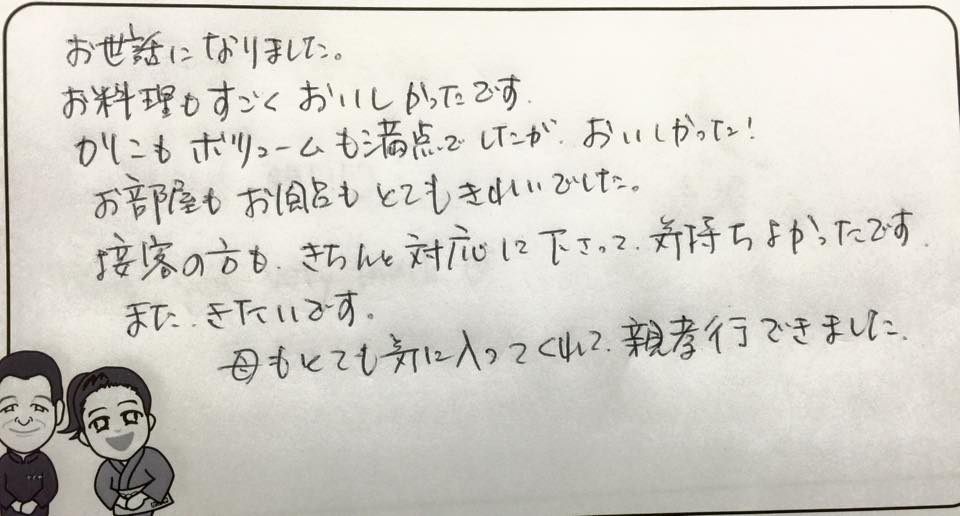 お世話になりました。
お料理もすごくおいしかったです.
かにこもボリュームも満点でしたが、おいしかった!
お部屋もお風呂もとてもきれいでした。
接客の方も、きちんと対応して下さって、気持ちよかったです.
また、きたいです。
母もとても気に入ってくれて、親孝行できました.